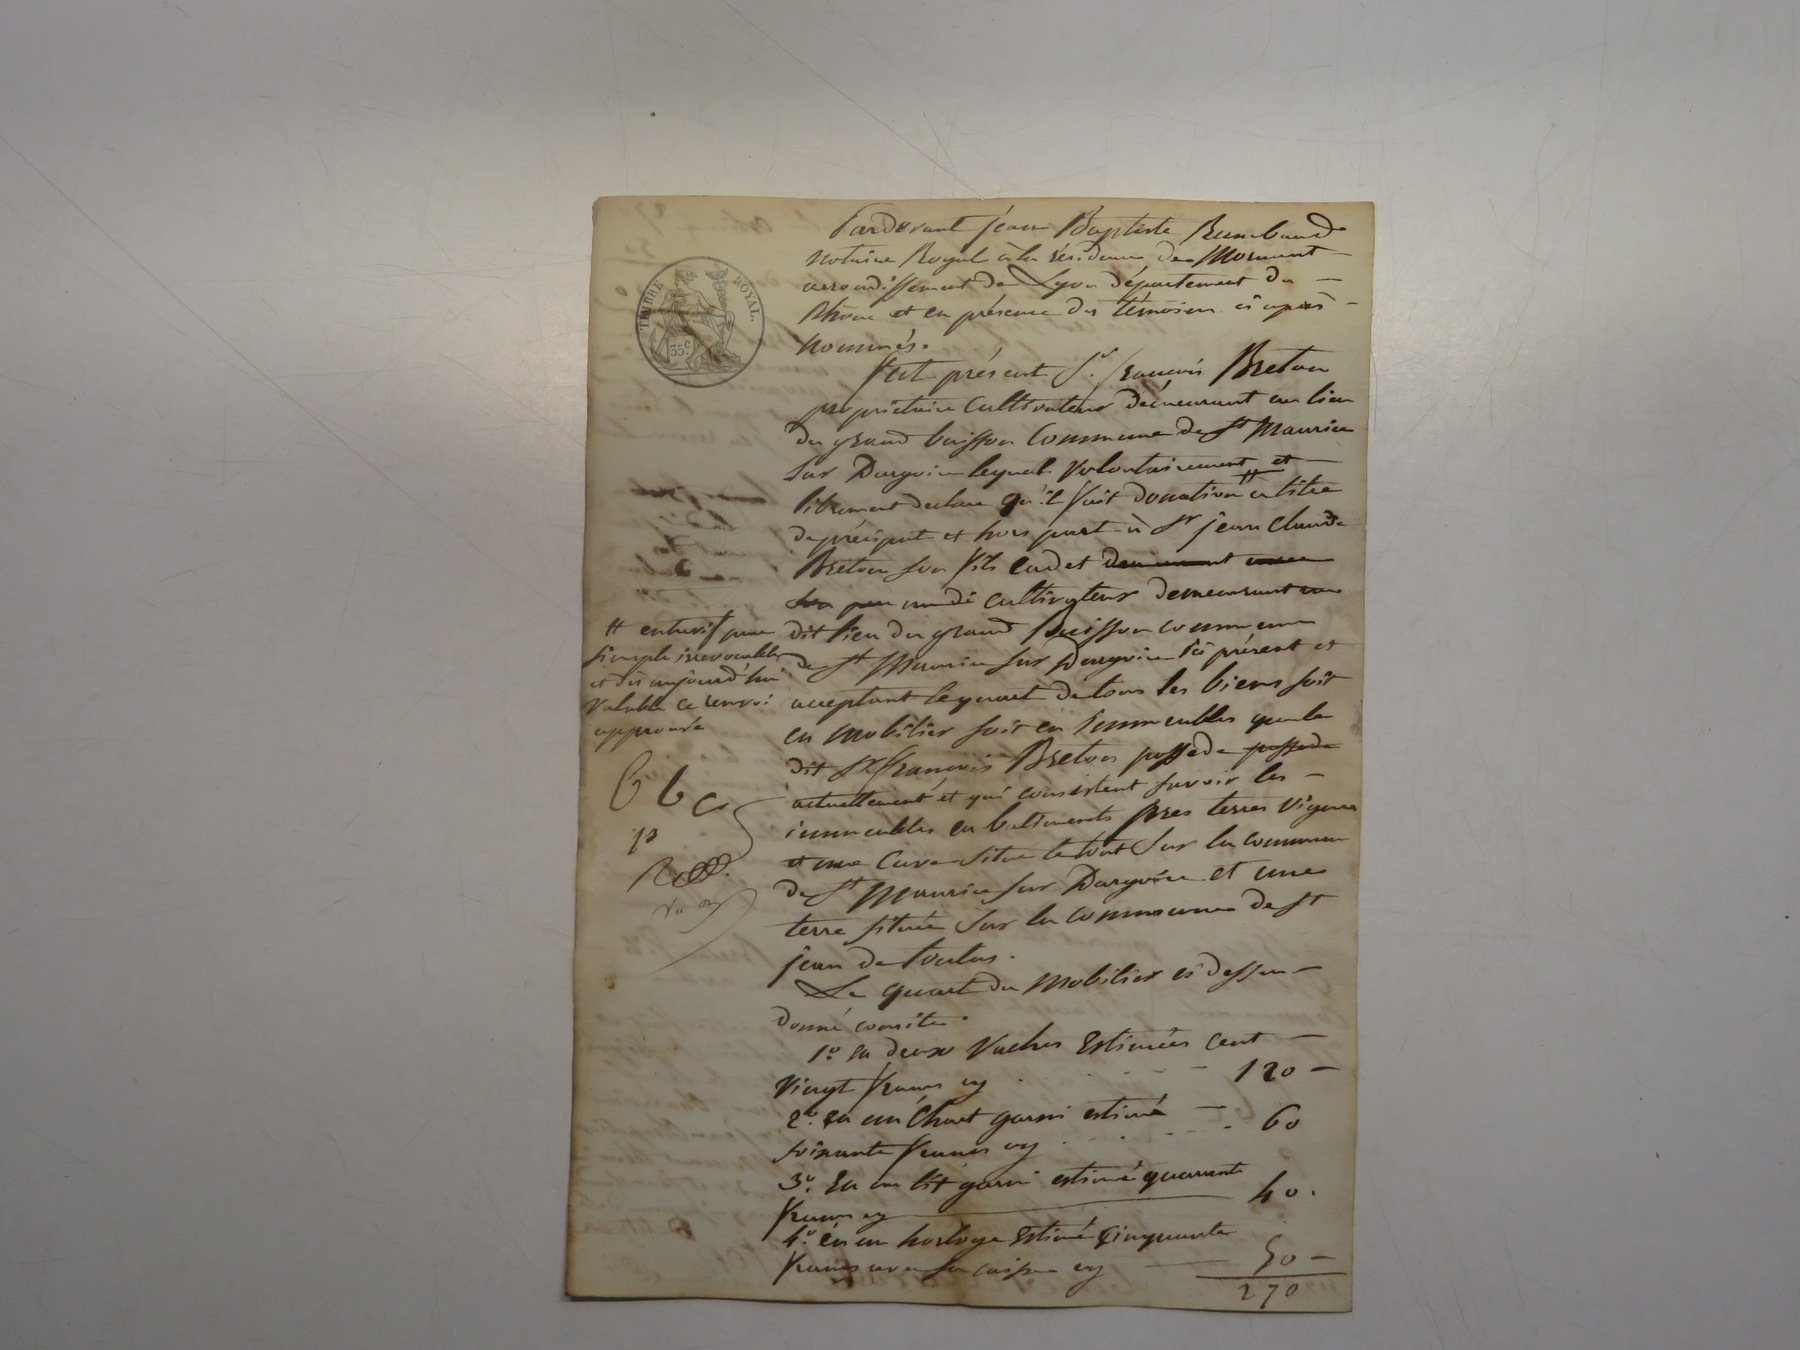 TIMBRE ROYAL.
35c
Pardevant jean Baptiste Rambaud
notaire Royal à la résidence de Mornant
arrondissement de Lyon département du
Rhône et en présence des témoins ci après
nommés.
fut présent Sr. françois Breton
propriétaire Cultivateur demeurant au lieu
du grand buisson Commune de St Maurice
sur Dargoire lequel volontairement et
librement declare qu'il fait donation # a titre
de préciput et hors part à Sr jean Claude
Breton son fils cadet demeurant avec
son pere cultivateur demeurant au
dit lieu du grand buisson commune
de St Maurice sur Dargoire ici présent et
acceptant le quart de tous les biens soit
en mobilier soit en immeubles que le
dit Sr françois Breton possede possede
actuellement et qui consistent savoir les
immeubles en batiments prés terres vignes
et une Cuve situe le tout sur la commune
de St Maurice sur Dargoire et une
terre située sur la commune de St
jean de toulas.
Le quart du mobilier ci dessus
donné consite
1o. en deux Vaches Estimées cent
vingt francs cy 120
2o. en un Char garni estimé
soixante francs cy 60
3o. En un lit garni estimé quarante
francs cy 40.
4o. en un horloge Estimé Cinquante
francs avec sa caisse cy 50
270
# entrevif pure
simple irrevocable
et dès aujourd'hui
valable ce renvoi
approuvé